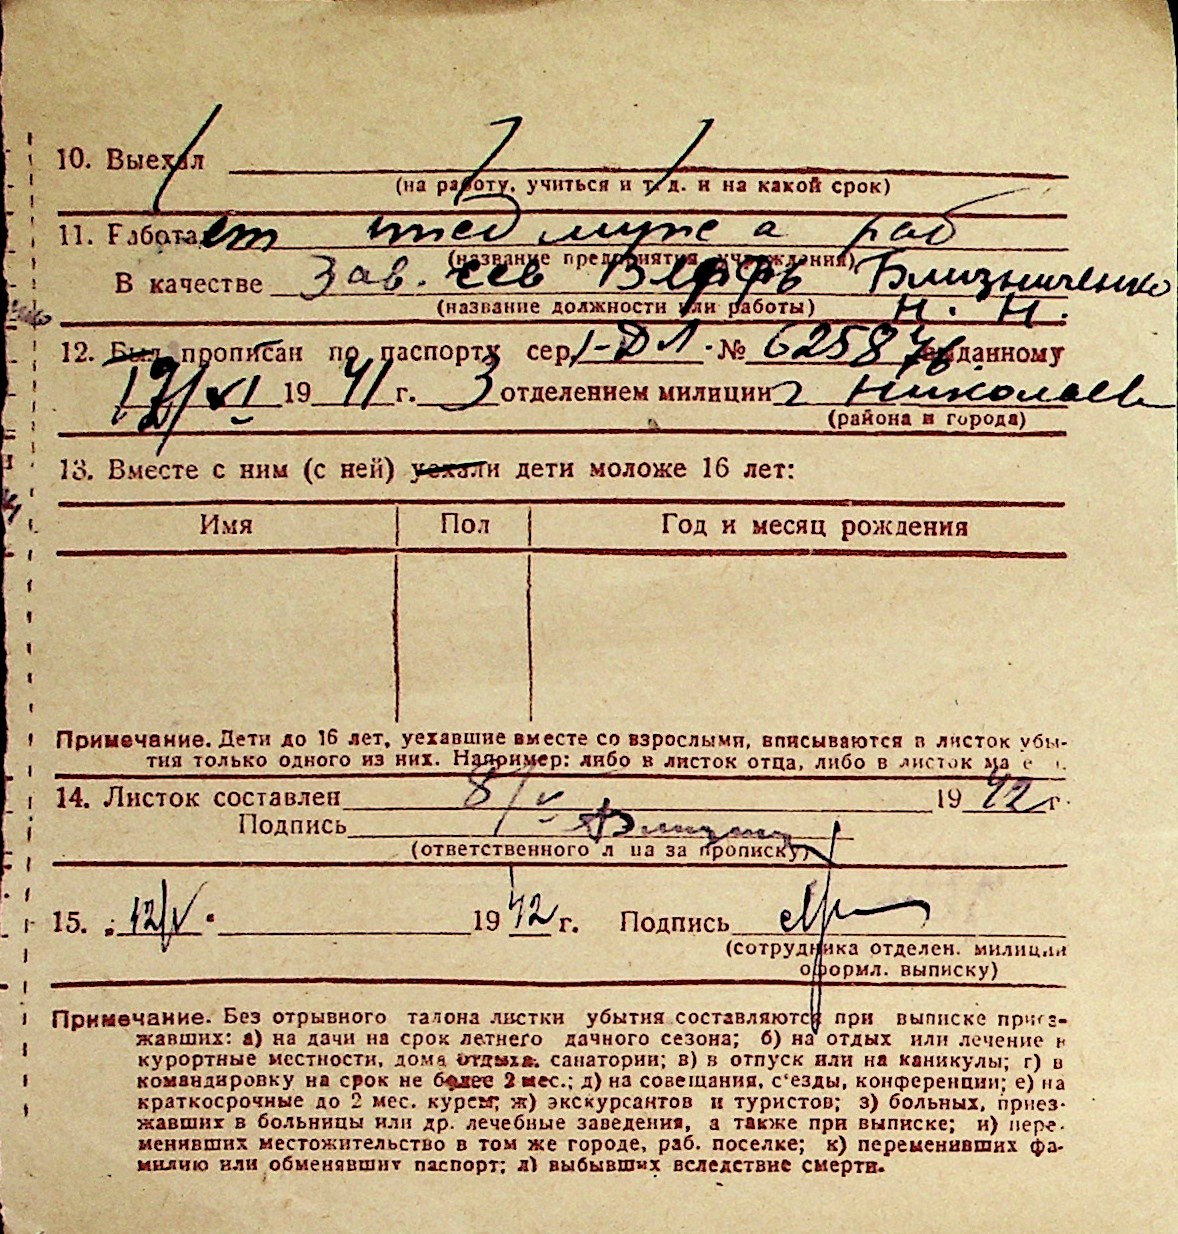 10. Выехал
(на работу, учиться и т. д. и на какой срок)
11. Работает муж а раб
(название предприятия, учреждения)
В качестве Зав. Близниченко
(название должности или работы) Н. Н.
12. Был прописан по паспорту сер. I-ДЛ № 625876 выданному
12/VI 1941 г. 3 отделением милиции г Николаев
(района и города)
13. Вместе с ним (с ней) уехали дети моложе 16 лет:
Имя Пол Год и месяц рождения
Примечание. Дети до 16 лет, уехавшие вместе со взрослыми, вписываются в листок убы-
тия только одного из них. Например: либо в листок отца, либо в листок ма е
14. Листок составлен 8/V 1942 г.
Подпись
(ответственного л ца за прописку)
15. 12/V 1942 г. Подпись
(сотрудника отделен. милиции
оформл. выписку)
Примечание. Без отрывного талона листки убытия составляются при выписке приез-
жавших: а) на дачи на срок летнего дачного сезона; б) на отдых или лечение в
курортные местности, дома отдыха, санатории; в) в отпуск или на каникулы; г) в
командировку на срок не более 2 мес.; д) на совещания, с'езды, конференции; е) на
краткосрочные до 2 мес. курсы; ж) экскурсантов и туристов; з) больных, приез-
жавших в больницы или др. лечебные заведения, а также при выписке; и) пере-
менивших местожительство в том же городе, раб. поселке; к) переменивших фа-
милию или обменявших паспорт; л) выбывших вследствие смерти.